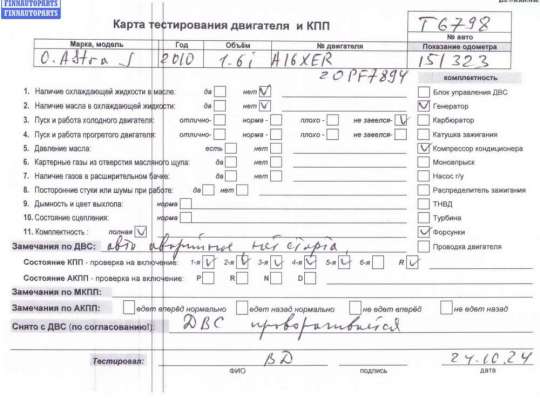 FINNAUTOPARTS
FINNAUTOPARTS
Карта тестирования двигателя и КПП
T6798
№ авто
Марка, модель Год Объём № двигателя Показание одометра
O. Astra J 2010 1.6i A16XER 151323
20PF7894
комплектность
1. Наличие охлаждающей жидкости в масле: да нет V Блок управления ДВС
2. Наличие масла в охлаждающей жидкости: да нет V V Генератор
3. Пуск и работа холодного двигателя: отлично- норма - плохо - не завелся- V Карбюратор
4. Пуск и работа прогретого двигателя: отлично- норма - плохо - не завелся- Катушка зажигания
5. Давление масла: есть нет V Компрессор кондиционера
6. Картерные газы из отверстия масляного щупа: да нет Моновпрыск
7. Наличие газов в расширительном бачке: да нет Насос г/у
8. Посторонние стуки или шумы при работе: да нет Распределитель зажигания
9. Дымность и цвет выхлопа: норма ТНВД
10. Состояние сцепления: норма Турбина
11. Комплектность : полная V V Форсунки
Замечания по ДВС: авто аварийное, нет старта, Проводка двигателя
Состояние КПП - проверка на включение: 1-я V 2-я V 3-я V 4-я V 5-я V 6-я R V
Состояние АКПП - проверка на включение: P R N D
Замечания по МКПП:
Замечания по АКПП: едет вперёд нормально едет назад нормально не едет вперёд не едет назад
Снято с ДВС (по согласованию!): ДВС проворачивается
Тестировал: ВД 24.10.24
ФИО подпись дата